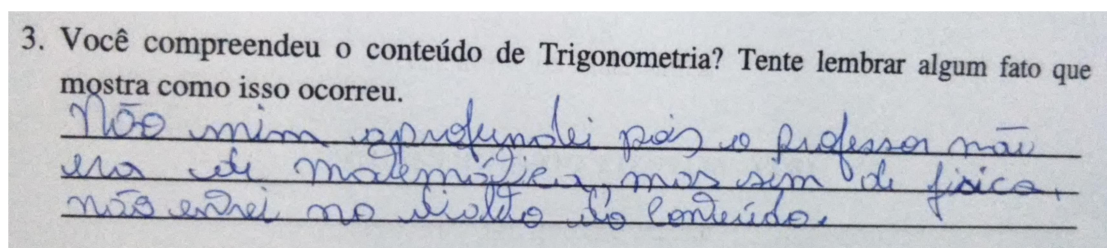 3. Você compreendeu o conteúdo de Trigonometria? Tente lembrar algum fato que
mostra como isso ocorreu.
Não mim aprofundei pois o professor não
era de matemática, mas sim de física,
não entrei no do conteúdo.